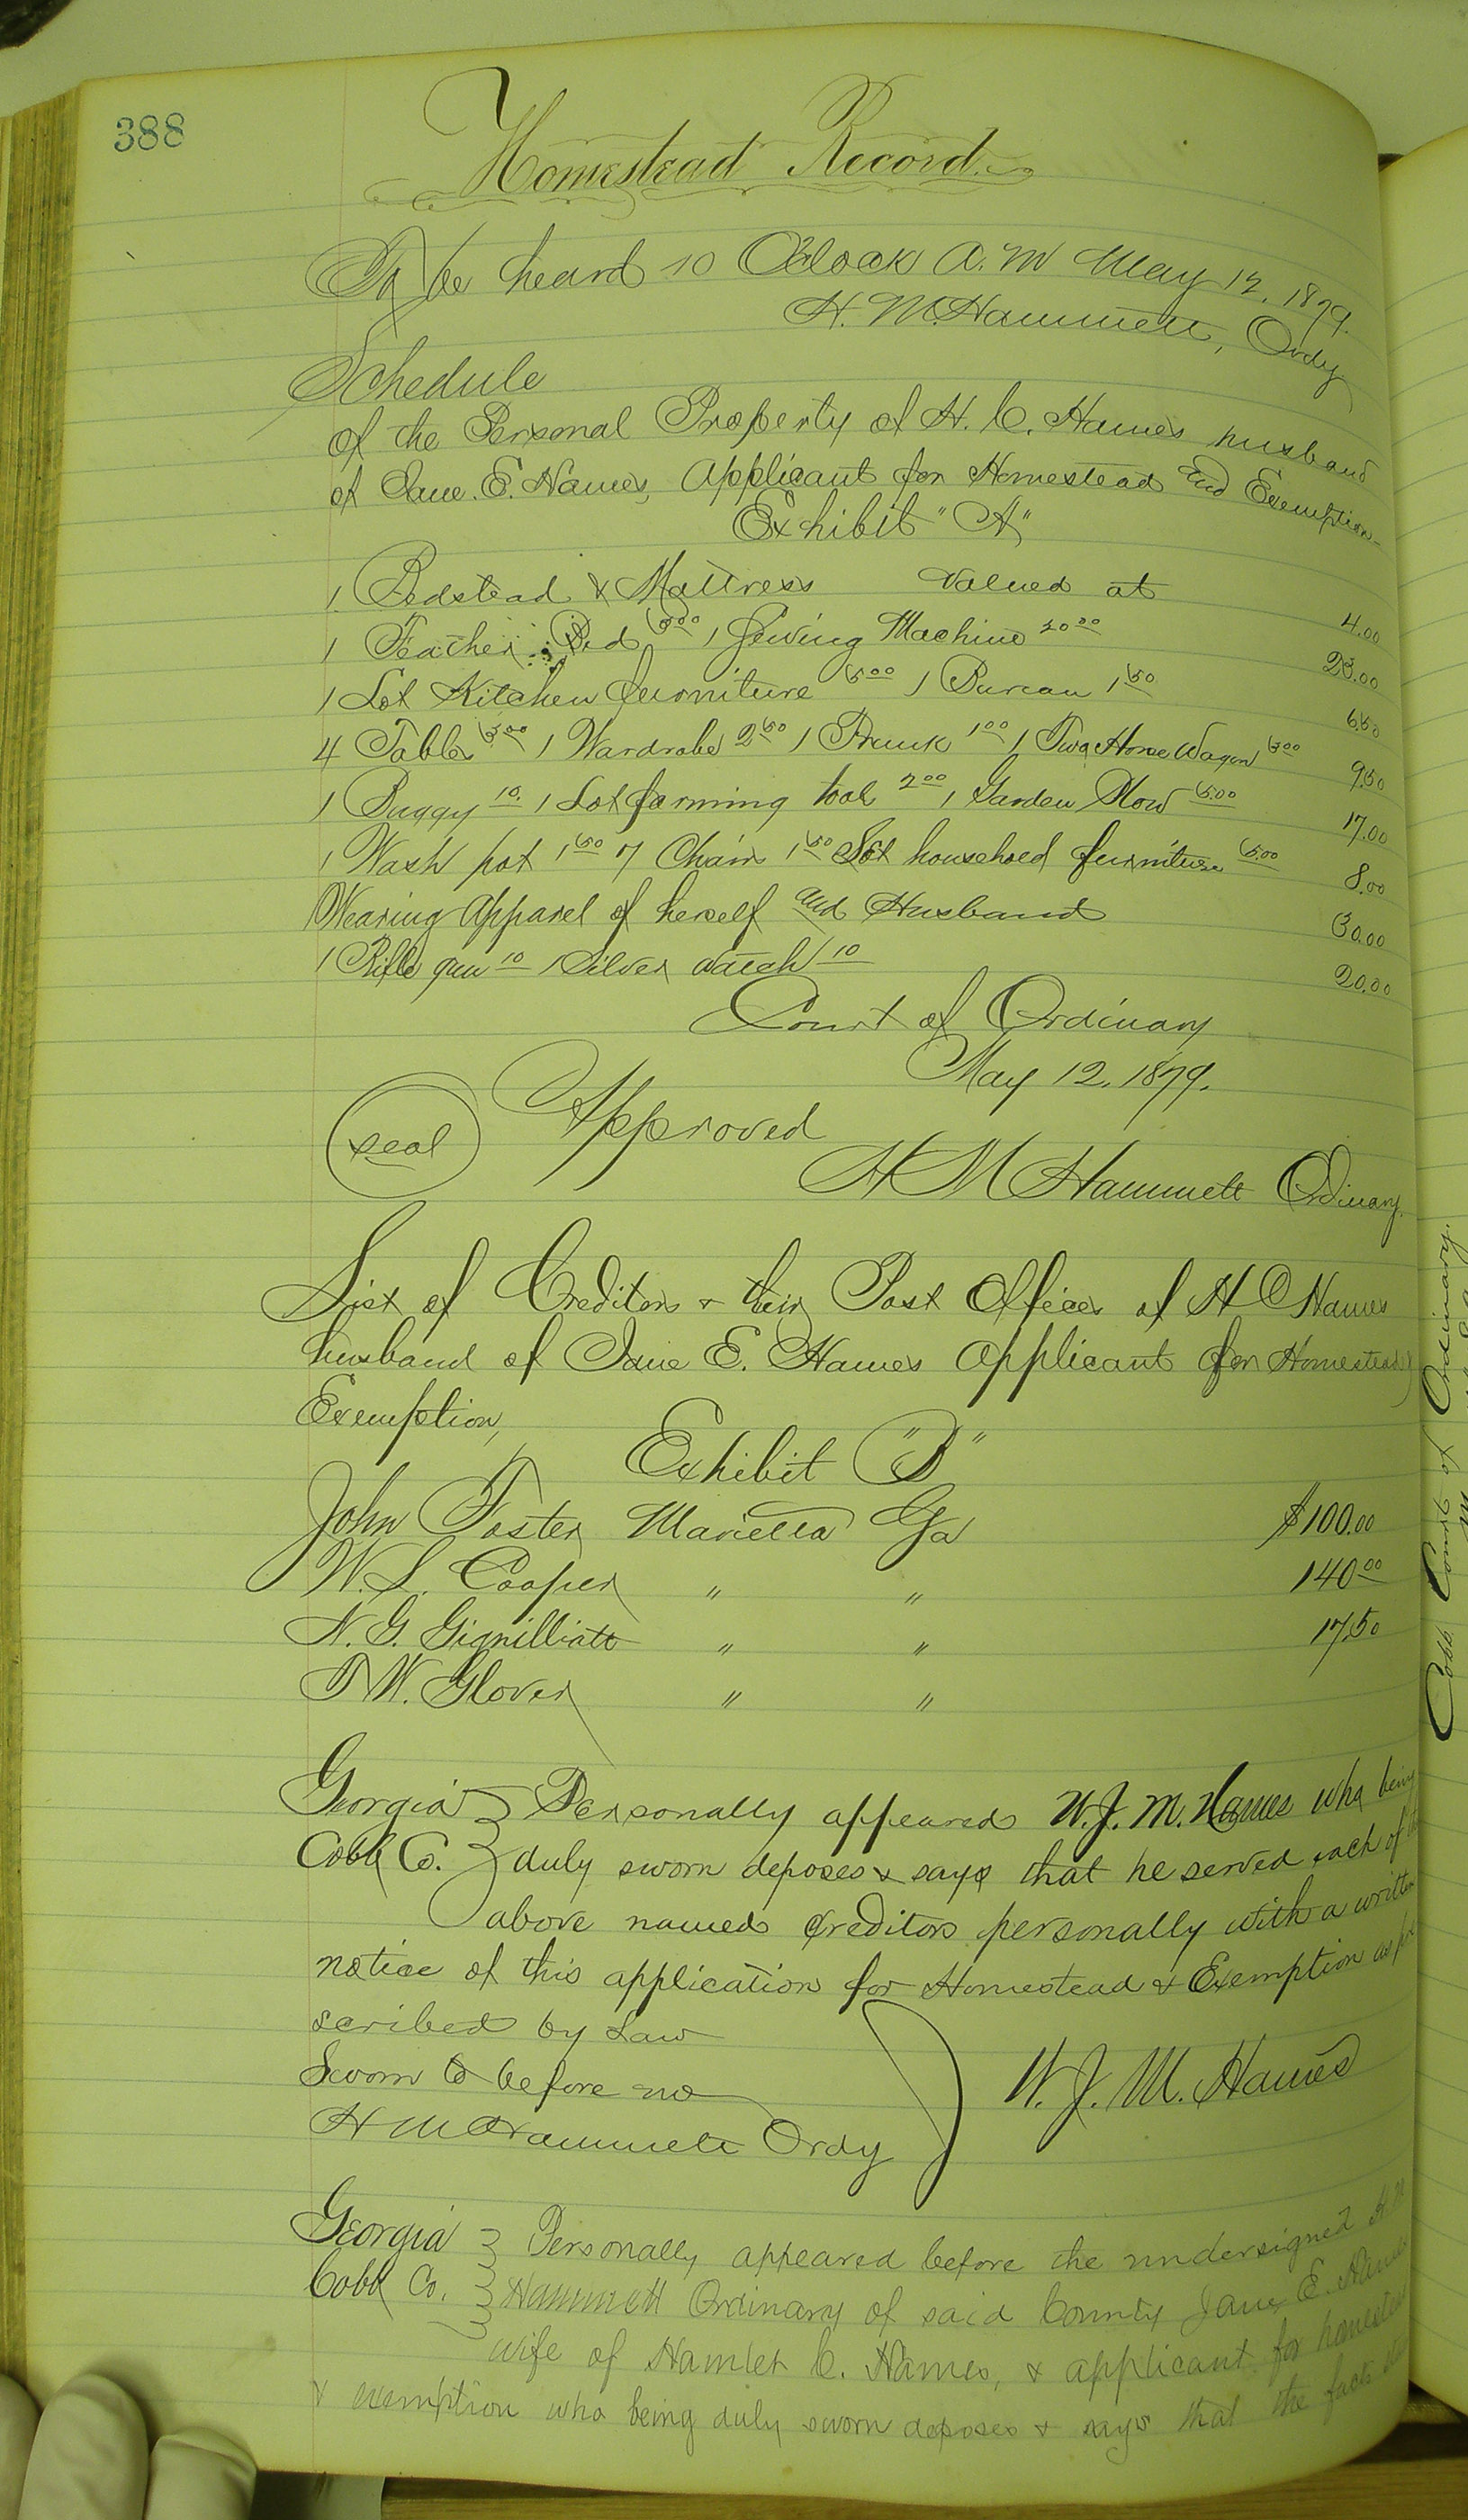 388
Homestead Record
To be heard 10 O'Clock A.M May 12, 1879.
H. M. Hammett, Ordy
Schedule
of the Personal Property of H. C. Hames husband
of Jane. E. Hames, Applicant for Homestead and Exemption
Exhibit "A"
1 Bedstead & Mattress valued at 4.00
1 Feather Bed 3.00 1 Sewing Machine 20.00 23.00
1 Lot Kitchen furniture 5.00 1 Bureau 1.50 6.50
4 Tables 3.00 1 Wardrobe 2.50 1 Trunk 1.00 1 Two Horse Wagon 3.00 9.50
1 Buggy 10. 1 Lot farming tool 2.00 1 Garden Plow 5.00 17.00
1 Wash pot 1.50 7 Chairs 1.50 Lot household furniture 5.00 8.00
Wearing Apparel of herself and Husband 30.00
1 Rifle gun 10 1 Silver watch 10 20.00
Court of Ordinary
May 12, 1879.
seal Approved
H M Hammett Ordinary.
List of Creditors & their Post Offices of H C Hames
husband of Jane E. Hames applicant for Homestead
Exemption,
Exhibit "B"
John Foster Marietta Ga $100.00
W. S. Cooper " " 140.00
N. G. Gignilliatt " " 17.50
T. W. Glover " "
Georgia Personally appeared W. J. M. Hames who being
Cobb Co. duly sworn deposes & says that he served each of
above named creditors personally with a written
notice of this application for Homestead & Exemption as
scribed by Law
Sworn to before me
W. J. M. Hames
H M Hammett Ordy
Georgia Personally appeared before the undersigned H. M
Cobb Co. Hammett Ordinary of said County Jane E. Hames
wife of Hamlet C. Hames, & applicant for homestead
& exemption who being duly sworn deposes & says that the facts
Cobb Court of Ordinary.